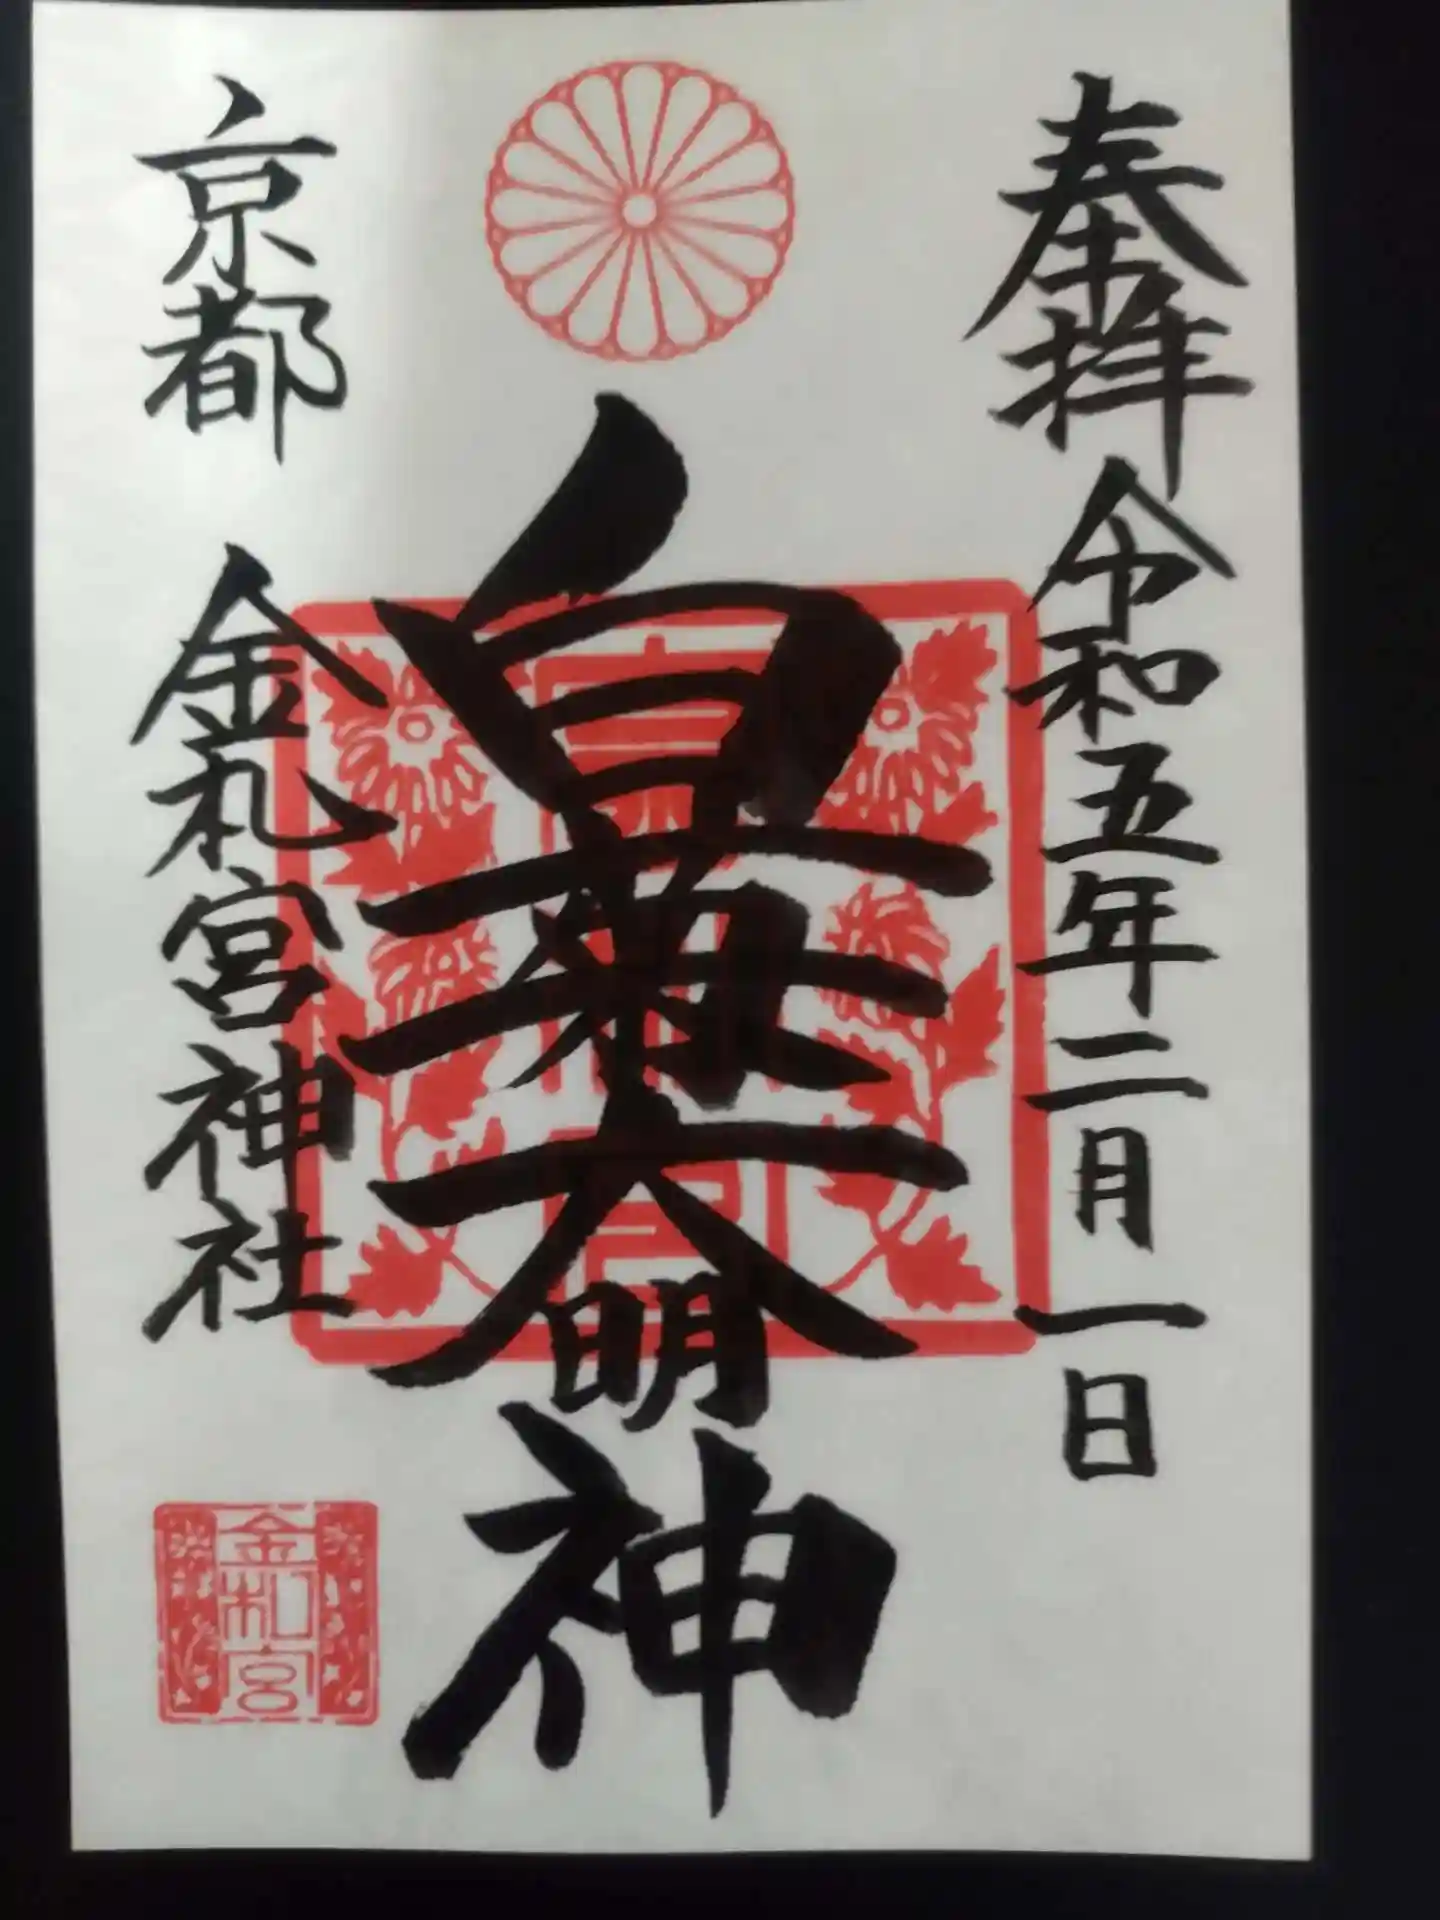 奉拝 令和五年二月一日
白菊大明神
京都 金札宮神社
金札宮